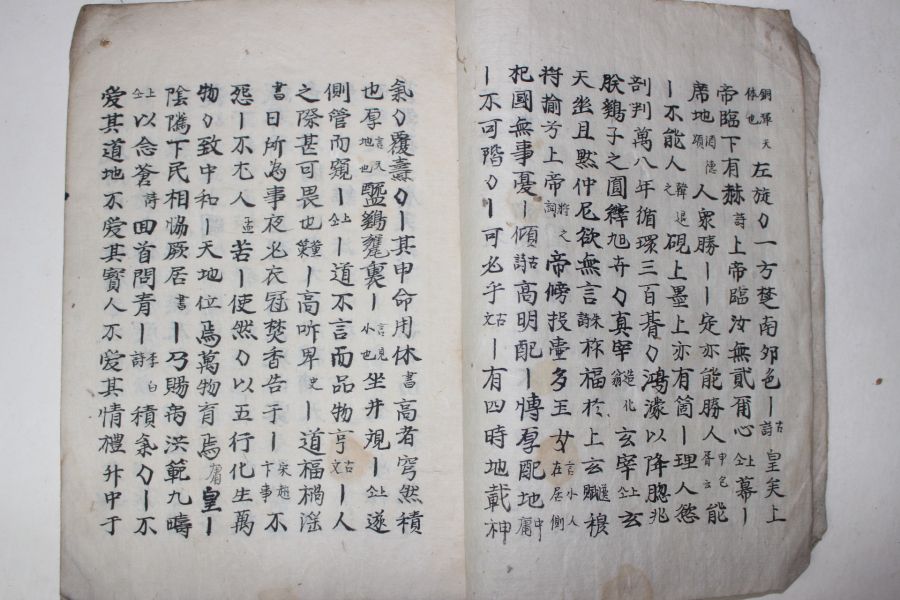 銅渾天体也左旋〻一方楚南卵色丨古詩皇矣上
帝臨下有赫詩上帝臨汝無貳爾心仝上幕丨
席地酒德頌人衆勝丨丨定亦能勝人申包胥云能
丨不能人韓退之硯上墨上亦有箇丨理人慾
剖判萬八年循環三百朞〻鴻濛以降腮兆
朕鷄子之圓繹旭卉〻真宰造化翁玄宰仝上玄
天坐且默仲尼欲無言朱詩秝福於上玄選賦穆
将揄兮上帝詞将之帝傍投壺多玉女言小人在居側
杞國無事憂丨傾古詩高明配丨慱厚配地中庸
丨不可階〻丨可必乎古文丨有四時地載神
氣〻覆燾〻丨其申命用休書高者穹然積
也厚言民地也盬鷄甕裏丨言見小也坐井覌丨仝上遂
側管而窺丨仝上道不言而品物亨古文丨人
之際甚可畏也董策丨高听卑史丨道福禍滛
書日所為事夜必衣冠焚香告于丨宋趙卞事不
怨丨不尤人孟苦丨使然〻以五行化生萬
物〻致中和丨天地位焉萬物育焉庸皇丨
陰隲下民相恊厥居書丨乃賜禹洪範九疇
仝上以念蒼詩回首問青丨李白詩積氣〻丨不
愛其道地不愛其寶人不愛其情禮升中于